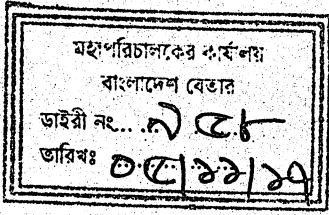 মহাপরিচালকের কার্যালয়
বাংলাদেশ বেতার
ডাইরী নং... ৭৫৮
তারিখঃ ০৫/১১/১৭